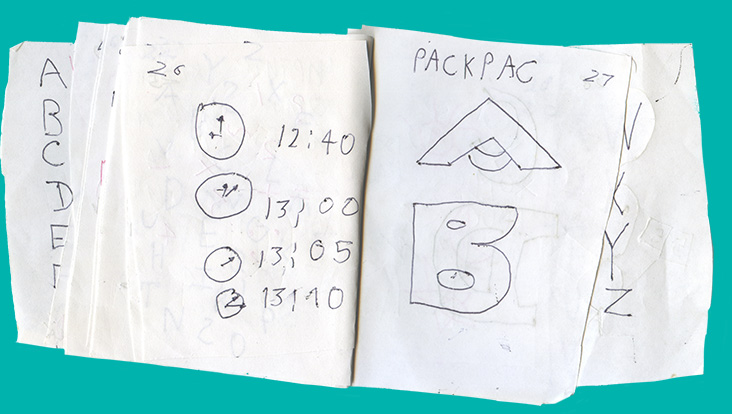 A
B
C
D
E
26
12:40
13:00
13:05
13:10
PACKPAC
27
A
B
K
Y
Z